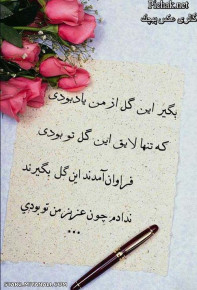 Pichak.net
گالری عکس پیچک
بگیر این گل از من یادبودی
که تنها لایق این گل تو بودی
فراوان آمدند این گل بگیرند
ندادم چون عزیز من تو بودی
...